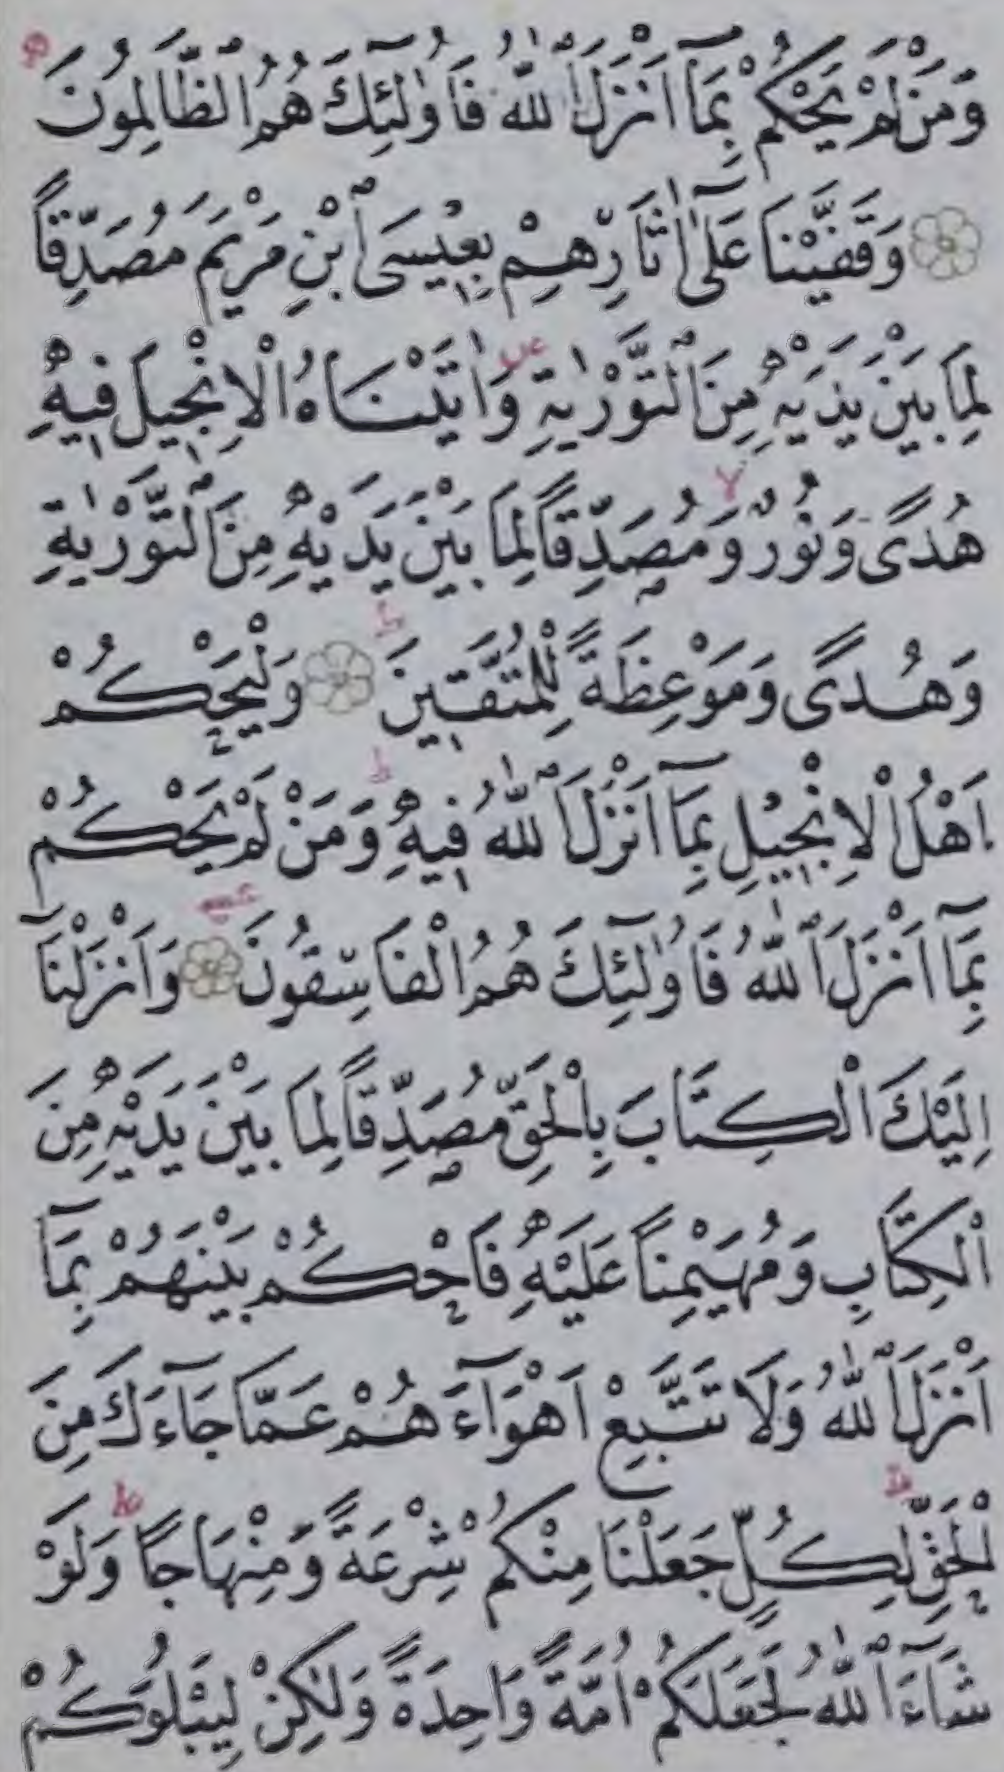 وَمَنْ لَمْ يَحْكُمْ بِمَٓا اَنْزَلَ اللّٰهُ فَاُو۬لٰٓئِكَ هُمُ الظَّالِمُونَ
وَقَفَّيْنَا عَلٰٓى اٰثَارِهِمْ بِعِيسَى ابْنِ مَرْيَمَ مُصَدِّقًا
لِمَا بَيْنَ يَدَيْهِ مِنَ التَّوْرٰيةِ وَاٰتَيْنَاهُ الْاِنْجِيلَ فِيهِ
هُدًى وَنُورٌ وَمُصَدِّقًا لِمَا بَيْنَ يَدَيْهِ مِنَ التَّوْرٰيةِ
وَهُدًى وَمَوْعِظَةً لِلْمُتَّقِينَ وَلْيَحْكُمْ
اَهْلُ الْاِنْجِيلِ بِمَٓا اَنْزَلَ اللّٰهُ فِيهِ وَمَنْ لَمْ يَحْكُمْ
بِمَٓا اَنْزَلَ اللّٰهُ فَاُو۬لٰٓئِكَ هُمُ الْفَاسِقُونَ وَاَنْزَلْنَٓا
اِلَيْكَ الْكِتَابَ بِالْحَقِّ مُصَدِّقًا لِمَا بَيْنَ يَدَيْهِ مِنَ
الْكِتَابِ وَمُهَيْمِنًا عَلَيْهِ فَاحْكُمْ بَيْنَهُمْ بِمَٓا
اَنْزَلَ اللّٰهُ وَلَا تَتَّبِعْ اَهْوَٓاءَهُمْ عَمَّا جَٓاءَكَ مِنَ
الْحَقِّ لِكُلٍّ جَعَلْنَا مِنْكُمْ شِرْعَةً وَمِنْهَاجًا وَلَوْ
شَٓاءَ اللّٰهُ لَجَعَلَكُمْ اُمَّةً وَاحِدَةً وَلٰكِنْ لِيَبْلُوَكُمْ